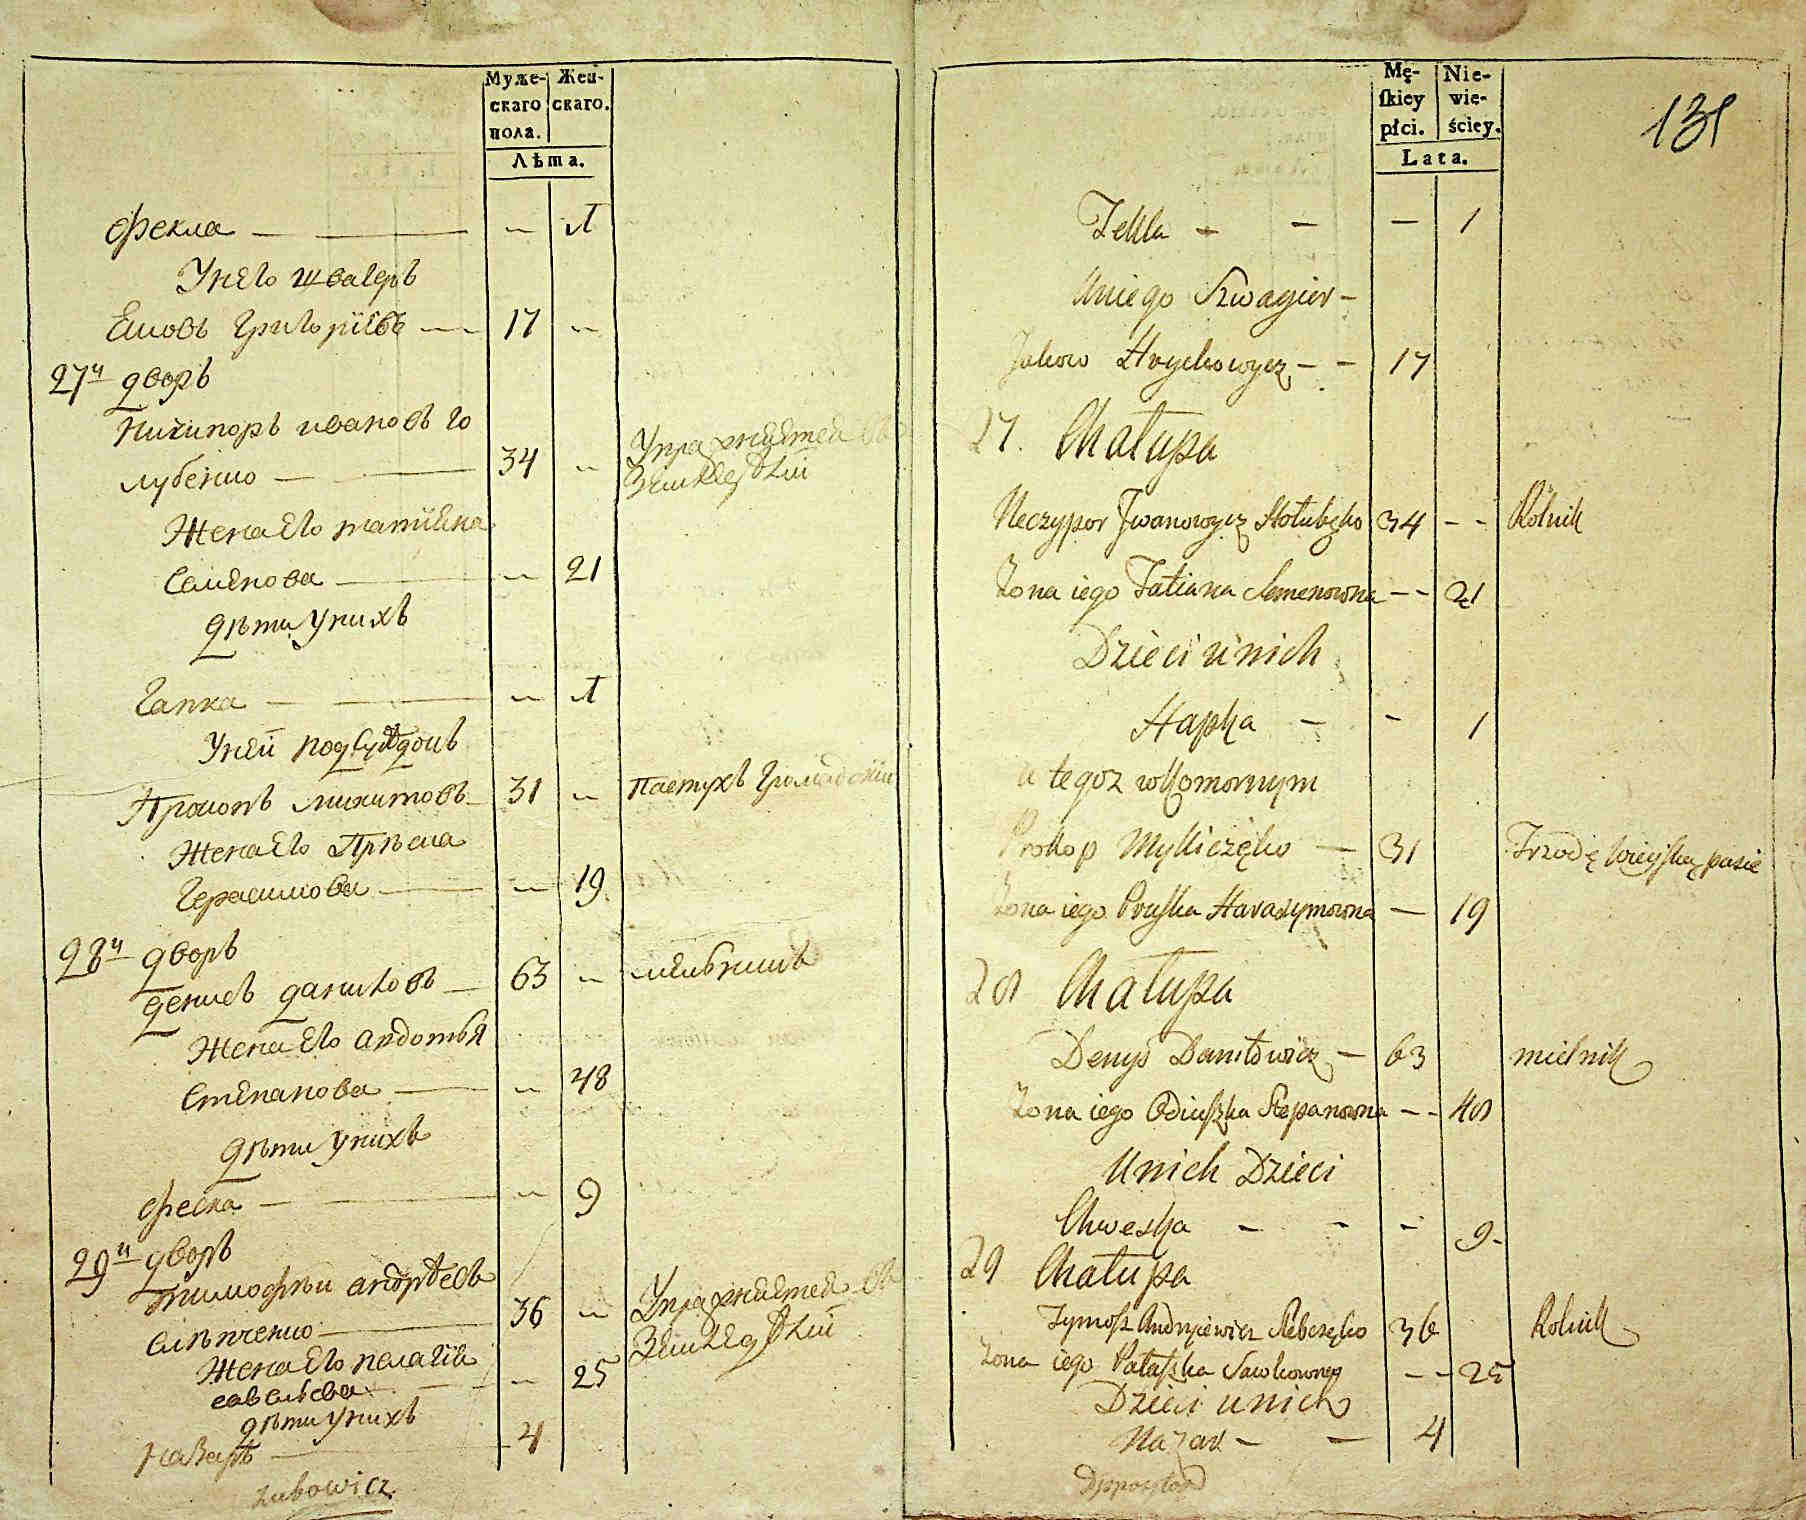 Муже- Жен-
скаго скаго.
пола.
Лѣта.
Фекла — — — 1
У него швагеръ
Яковъ Григорiевъ — 17 —
27й дворъ
Ничипоръ ивановъ го
лубенко — — 34 — Упражняется въ
Земледѣлiи
Жена его татiяна
Семенова — — 21
дѣти у нихъ
Гапка — — — 1
У ней подсусѣдокъ
Прокопъ микитовъ 31 — Пастухъ громадскiй
Жена его Прѣска
Герасимова — — 19
28й дворъ
денисъ даниловъ — 63 — мельникъ
Жена его авдотья
Степанова — — 48
дѣти у нихъ
Феска — — — 9
29й дворъ
Тимофѣй андрѣевъ
слѣпченко — 36 — Упражняется въ
Земледѣлiи
Жена его пелагiя
савельева — — 25
дѣти у нихъ
Назаръ — 4
Lubowicz
Mę- Nie-
ſkiey wie-
płci. ściey.
Lata.
131
Tekla — — — 1
U niego Szwagier —
Jakow Hryckowycz — — 17
27. Chałupa
Neczypor Iwanowycz Hołubęko 34 - - Rolnik
Żona iego Tatiana Semenowna - - 21
Dzieci u nich
Hapka — - 1
u tegoz w Komornym
Prokop Mykiczęko — 31 Trzodę wieyską pasie
Żona iego Pruska Harasymowna — 19
28 Chałupa
Denys Daniłowicz — 63 mielnik
Żona iego Odiuszka Stepanowna - - 48
U nich Dzieci
Chweska - - - 9-
29 Chałupa
Tymosz Andryiewicz Slebczęko 36 Rolnik
Żona iego Pałaszka Sawkowna - - 25
Dzieci u nich
Nazar — — 4